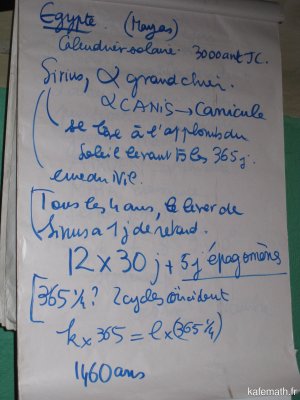 Egypte (Mayas)
Calendrier solaire. 3000 ant JC.
Sirius, α grand chien.
α CANIS → Canicule
se lève à l'applomb du
Soleil levant ts les 365 j.
crue du Nil.
Tous les 4 ans, le lever de
Sirius a 1 j de retard.
12 x 30 j + 5 j épagomènes
365 1/4 ? 2 cycles coïncident
k x 365 = l x (365 1/4)
1460 ans
kafemath.fr